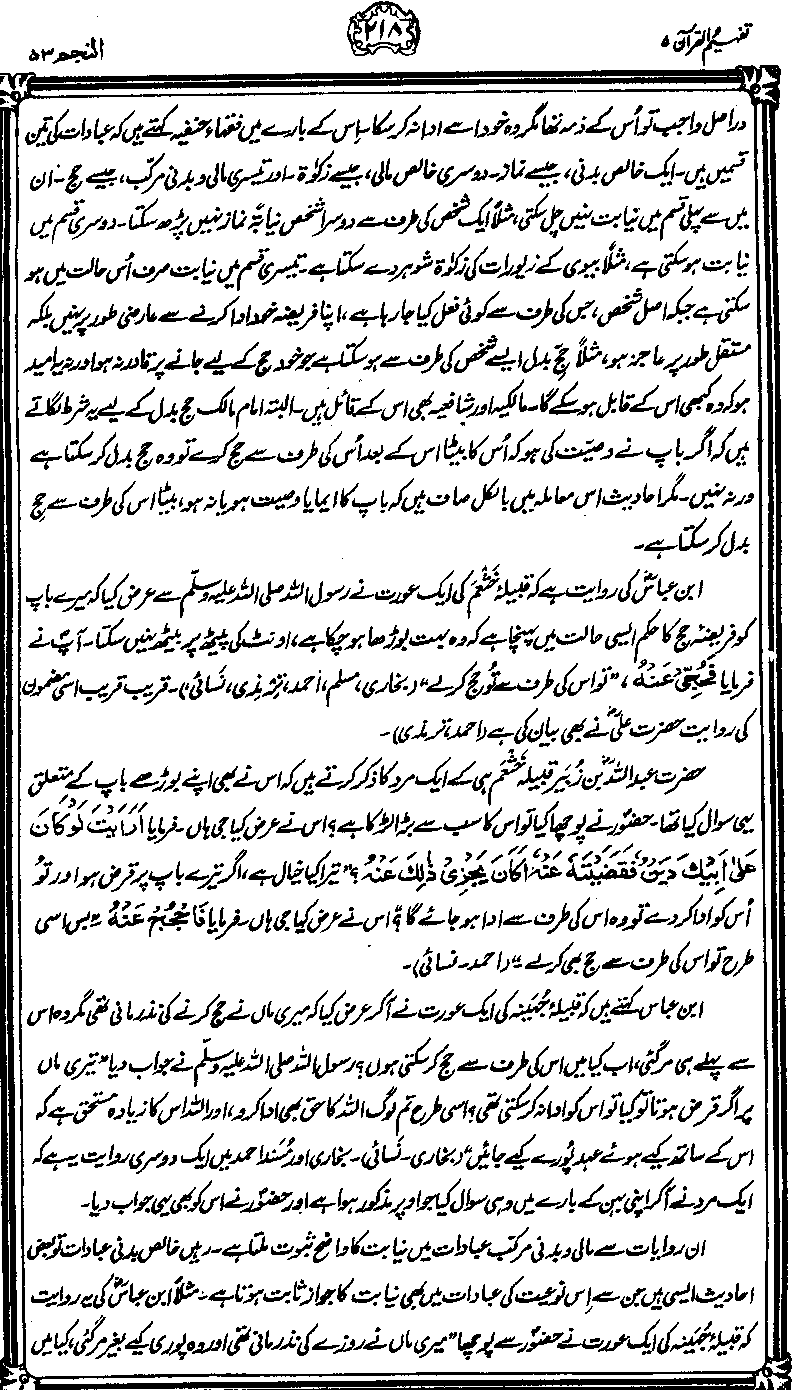 تفہیم القرآن ۵
۲۱۸
النجم ۵۳
دراصل واجب تو اُس کے ذمہ تھا مگر وہ خود اسے ادا نہ کر سکا۔ اِس کے بارے میں فقہاء حنفیہ کہتے ہیں کہ عبادات کی تین
قسمیں ہیں۔ ایک خالص بدنی، جیسے نماز۔ دوسری خالص مالی، جیسے زکوٰۃ۔ اور تیسری مالی و بدنی مرکّب، جیسے حج۔ ان
میں سے پہلی قسم میں نیابت نہیں چل سکتی، مثلاً ایک شخص کی طرف سے دوسرا شخص نیابۃً نماز نہیں پڑھ سکتا۔ دوسری قسم میں
نیابت ہو سکتی ہے، مثلاً بیوی کے زیورات کی زکوٰۃ شوہر دے سکتا ہے۔ تیسری قسم میں نیابت صرف اُس حالت میں ہو
سکتی ہے جبکہ اصل شخص، جس کی طرف سے کوئی فعل کیا جا رہا ہے، اپنا فریضہ خود ادا کرنے سے عارضی طور پر نہیں بلکہ
مستقل طور پر عاجز ہو، مثلاً حجِّ بدل ایسے شخص کی طرف سے ہو سکتا ہے جو خود حج کے لیے جانے پر قادر نہ ہو اور نہ یہ امید
ہو کہ وہ کبھی اس کے قابل ہو سکے گا۔ مالکیہ اور شافعیہ بھی اس کے قائل ہیں۔ البتہ امام مالک حج بدل کے لیے یہ شرط لگاتے
ہیں کہ اگر باپ نے وصیّت کی ہو کہ اُس کا بیٹا اس کے بعد اُس کی طرف سے حج کرے تو وہ حج بدل کر سکتا ہے
ورنہ نہیں۔ مگر احادیث اس معاملہ میں بالکل صاف ہیں کہ باپ کا ایما یا وصیت ہو یا نہ ہو، بیٹا اس کی طرف سے حج
بدل کر سکتا ہے۔
ابن عباسؓ کی روایت ہے کہ قبیلۂ خَثْعَم کی ایک عورت نے رسول اللہ صلی اللہ علیہ وسلّم سے عرض کیا کہ میرے باپ
کو فریضۂ حج کا حکم ایسی حالت میں پہنچا ہے کہ وہ بہت بوڑھا ہو چکا ہے، اونٹ کی پیٹھ پر بیٹھ نہیں سکتا۔ آپؐ نے
فرمایا فَحُجِّی عَنْهُ، ”تو اس کی طرف سے تُو حج کر لے“ (بخاری، مسلم، احمد، ترمذی، نَسائی)۔ قریب قریب اسی مضمون
کی روایت حضرت علیؓ نے بھی بیان کی ہے (احمد، ترمذی)۔
حضرت عبداللہؓ بن زُبیر قبیلۂ خَثْعَم ہی کے ایک مرد کا ذکر کرتے ہیں کہ اس نے بھی اپنے بوڑھے باپ کے متعلق
یہی سوال کیا تھا۔ حضورؐ نے پوچھا کیا تو اس کا سب سے بڑا لڑکا ہے؟ اس نے عرض کیا جی ہاں۔ فرمایا اَرَاَیْتَ لَوْ کَانَ
عَلٰی اَبِیْكَ دَیْنٌ فَقَضَیْتَهٗ عَنْهُ اَکَانَ یَجْزِیْ ذٰلِكَ عَنْهُ؟ ”تیرا کیا خیال ہے، اگر تیرے باپ پر قرض ہو اور تو
اُس کو ادا کر دے تو وہ اس کی طرف سے ادا ہو جائے گا؟“ اس نے عرض کیا جی ہاں۔ فرمایا فَاحْجُجْ عَنْهُ ”بس اسی
طرح تو اس کی طرف سے حج بھی کر لے“ (احمد۔ نسائی)۔
ابن عباس کہتے ہیں کہ قبیلۂ جُہَینہ کی ایک عورت نے آکر عرض کیا کہ میری ماں نے حج کرنے کی نذر مانی تھی مگر وہ اس
سے پہلے ہی مر گئی، اب کیا میں اس کی طرف سے حج کر سکتی ہوں؟ رسول اللہ صلی اللہ علیہ وسلّم نے جواب دیا ”تیری ماں
پر اگر قرض ہوتا تو کیا تو اس کو ادا نہ کر سکتی تھی؟ اسی طرح تم لوگ اللہ کا حق بھی ادا کرو، اور اللہ اس کا زیادہ مستحق ہے کہ
اس کے ساتھ کیے ہوئے عہد پورے کیے جائیں“ (بخاری۔ نَسائی)۔ بخاری اور مُسند احمد میں ایک دوسری روایت یہ ہے کہ
ایک مرد نے آکر اپنی بہن کے بارے میں وہی سوال کیا جو اوپر مذکور ہوا ہے اور حضورؐ نے اس کو بھی یہی جواب دیا۔
ان روایات سے مالی و بدنی مرکب عبادات میں نیابت کا واضح ثبوت ملتا ہے۔ رہیں خالص بدنی عبادات تو بعض
احادیث ایسی ہیں جن سے اِس نوعیت کی عبادات میں بھی نیابت کا جواز ثابت ہوتا ہے۔ مثلاً ابن عباسؓ کی یہ روایت
کہ قبیلۂ جُہَینہ کی ایک عورت نے حضورؐ سے پوچھا ”میری ماں نے روزے کی نذر مانی تھی اور وہ پوری کیے بغیر مر گئی، کیا میں